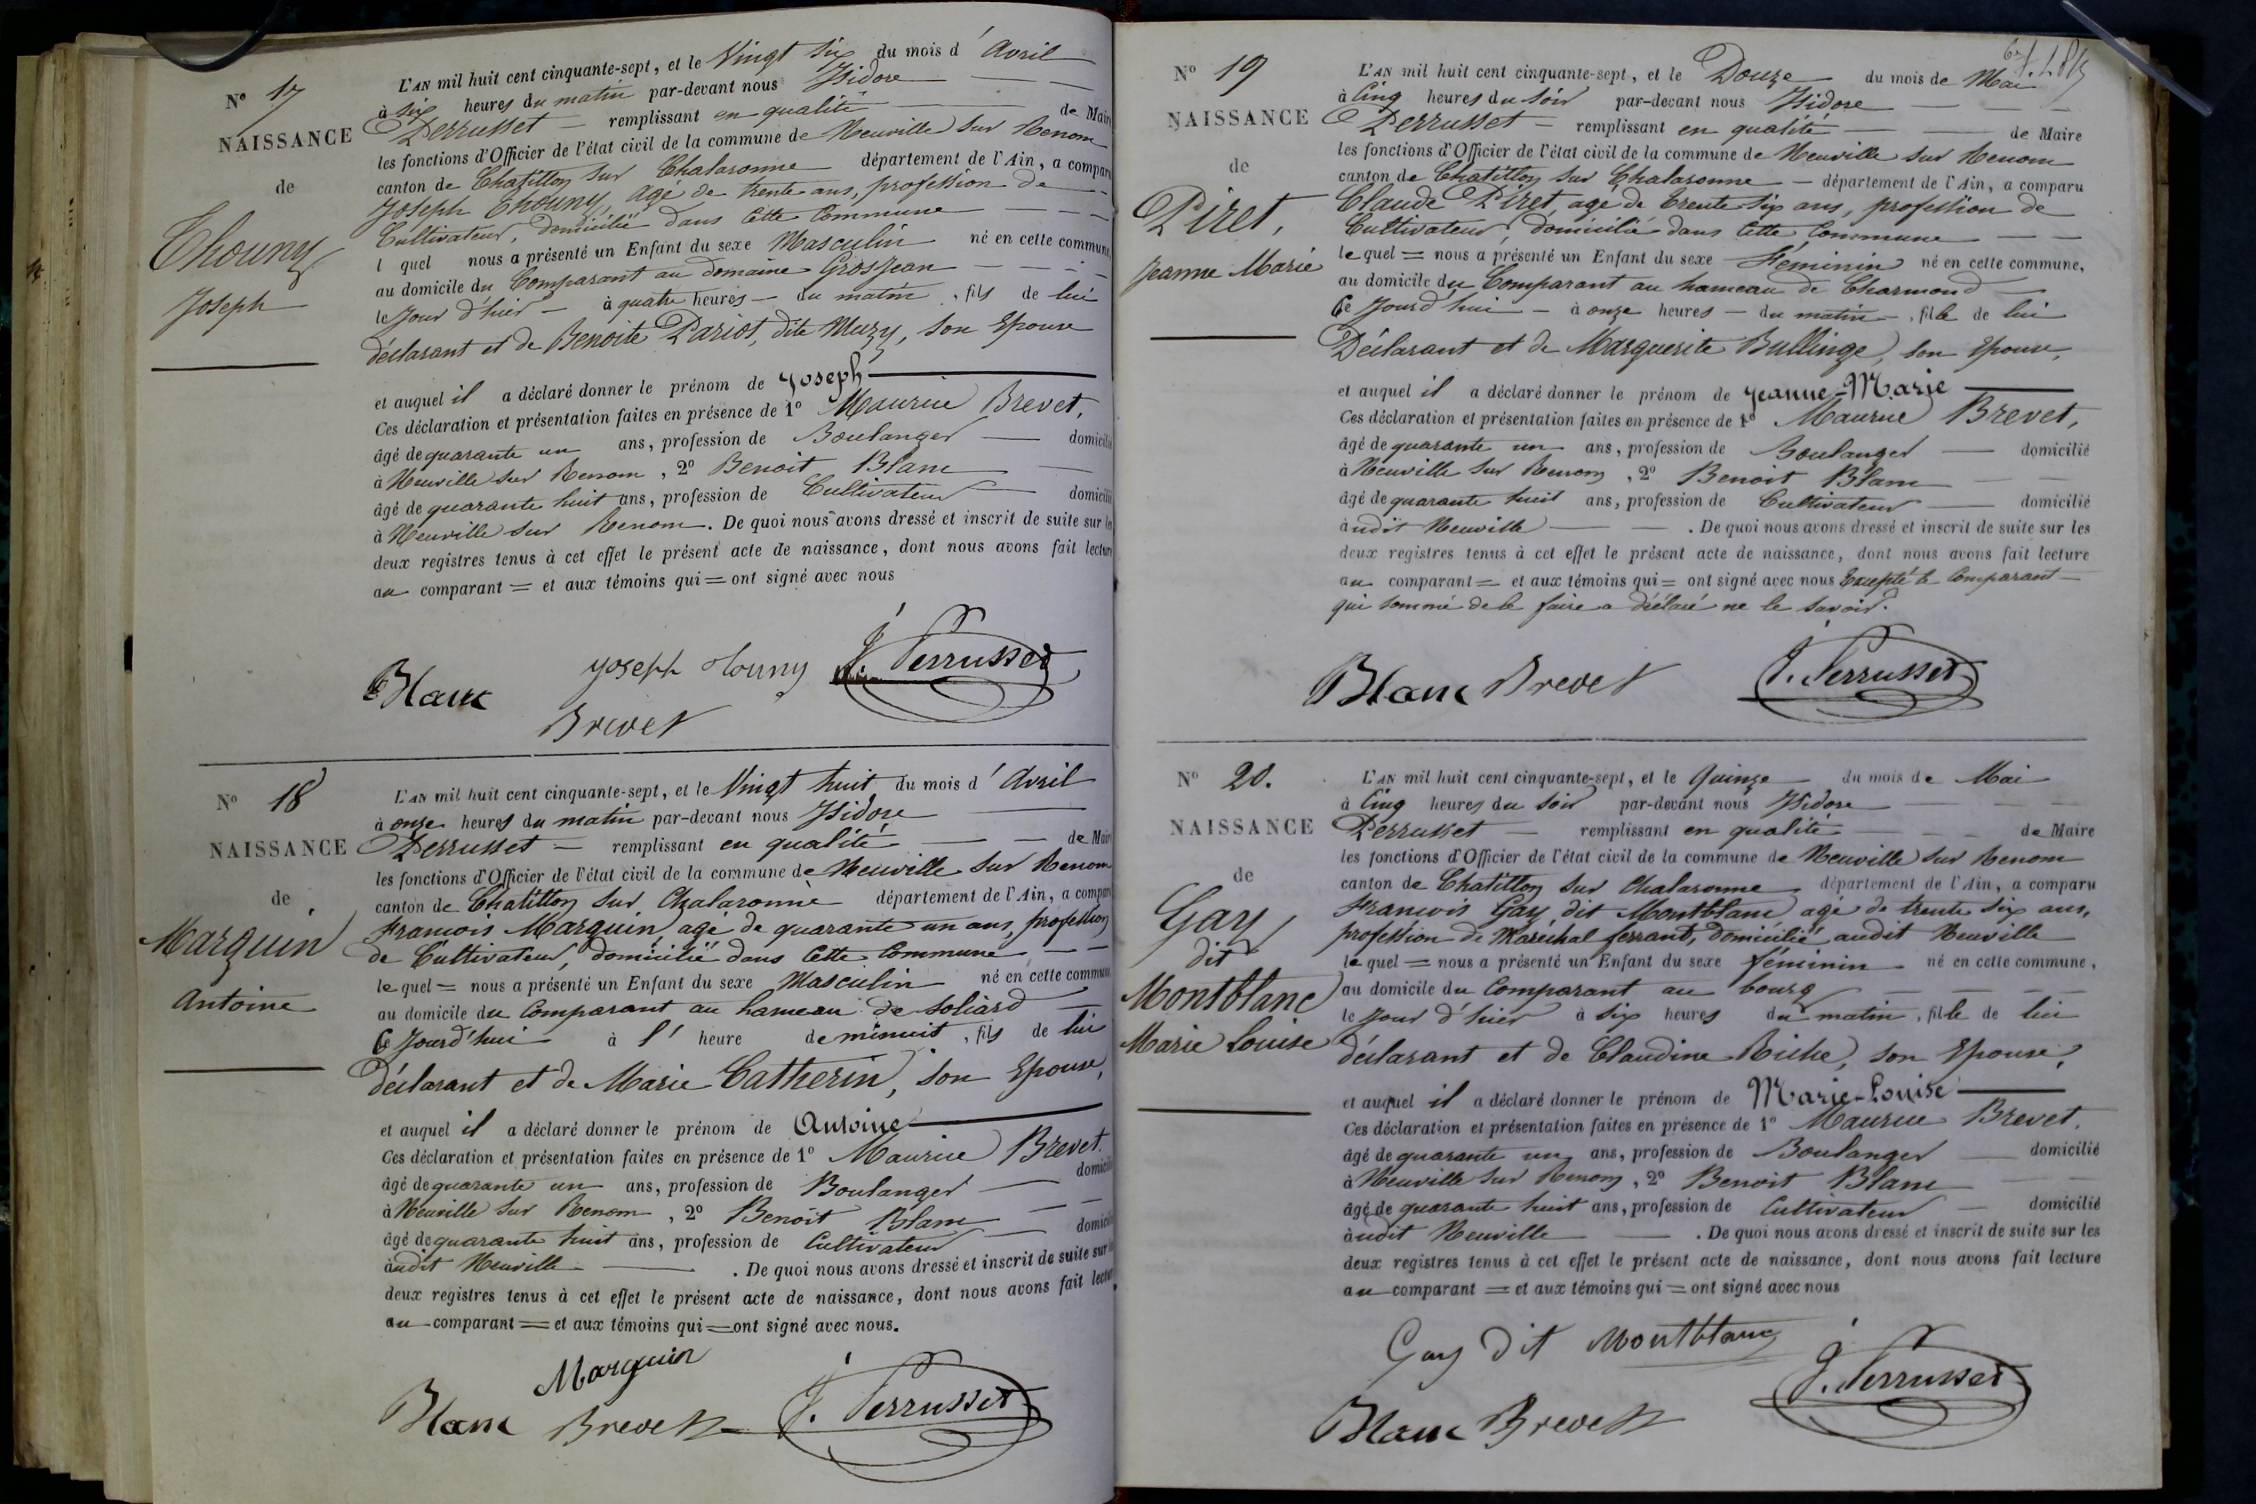 N° 17
NAISSANCE
de
Thouny
Joseph
L'AN mil huit cent cinquante-sept, et le Vingt six du mois d'Avril
à six heures du matin par-devant nous Isidore
Perrusset = remplissant en qualité de Maire
les fonctions d'Officier de l'état civil de la commune de Neuville sur Renom
canton de Chatillon sur Chalaronne département de l'Ain, a comparu
Joseph Thouny, agé de trente ans, profession de
Cultivateur, domicilié dans Cette Commune
lequel nous a présenté un Enfant du sexe Masculin né en cette commune,
au domicile du Comparant au domaine Grosjean
le Jour d'hier à quatre heures du matin, fils de lui
déclarant et de Benoite Pariot, dite Muzy, son Epouse
et auquel il a déclaré donner le prénom de Joseph
Ces déclaration et présentation faites en présence de 1° Maurice Brevet,
âgé de quarante un ans, profession de Boulanger domicilié
à Neuville sur Renom, 2° Benoit Blanc
âgé de quarante huit ans, profession de Cultivateur domicilié
à Neuville sur Renom. De quoi nous avons dressé et inscrit de suite sur les
deux registres tenus à cet effet le présent acte de naissance, dont nous avons fait lecture
au comparant = et aux témoins qui = ont signé avec nous
Joseph thouny J. Perrusset
Blanc
Brevet
N° 18
NAISSANCE
de
Marguin
Antoine
L'AN mil huit cent cinquante-sept, et le Vingt huit du mois d'Avril
à onze heures du matin par-devant nous Isidore
Perrusset = remplissant en qualité de Maire
les fonctions d'Officier de l'état civil de la commune de Neuville sur Renom
canton de Chatillon sur Chalaronne département de l'Ain, a comparu
Francois Marguin, agé de quarante un ans, profession
de Cultivateur, domicilié dans Cette Commune
lequel = nous a présenté un Enfant du sexe Masculin né en cette commune
au domicile du Comparant au hameau de Soliard
Ce Jourd'hui à l'heure de minuit, fils de lui
déclarant et de Marie Catherin, son Epouse,
et auquel il a déclaré donner le prénom de Antoine
Ces déclaration et présentation faites en présence de 1° Maurice Brevet.
âgé de quarante un ans, profession de Boulanger domicilié
à Neuville sur Renom, 2° Benoit Blanc
âgé de quarante huit ans, profession de Cultivateur domicilié
audit Neuville. De quoi nous avons dressé et inscrit de suite sur les
deux registres tenus à cet effet le présent acte de naissance, dont nous avons fait lecture
au comparant = et aux témoins qui = ont signé avec nous.
Marguin
Blanc Brevet J. Perrusset
N° 19
NAISSANCE
de
Piret,
Jeanne Marie
L'AN mil huit cent cinquante-sept, et le Douze du mois de Mai
à Cinq heures du soir par-devant nous Isidore
Perrusset = remplissant en qualité de Maire
les fonctions d'Officier de l'état civil de la commune de Neuville sur Renom
canton de Chatillon sur Chalaronne département de l'Ain, a comparu
Claude Piret, agé de trente six ans, profession de
Cultivateur, domicilié dans Cette Commune
lequel = nous a présenté un Enfant du sexe Féminin né en cette commune,
au domicile du Comparant au hameau de Charmond
Ce Jourd'hui à onze heures du matin, fille de lui
Déclarant et de Marguerite Bullinge, son Epouse,
et auquel il a déclaré donner le prénom de Jeanne-Marie
Ces déclaration et présentation faites en présence de 1° Maurice Brevet,
âgé de quarante un ans, profession de Boulanger domicilié
à Neuville sur Renom, 2° Benoit Blanc
âgé de quarante huit ans, profession de Cultivateur domicilié
audit Neuville. De quoi nous avons dressé et inscrit de suite sur les
deux registres tenus à cet effet le présent acte de naissance, dont nous avons fait lecture
au comparant = et aux témoins qui = ont signé avec nous Excepté le Comparant
qui sommé de le faire a déclaré ne le savoir.
Blanc Brevet J. Perrusset
N° 20.
NAISSANCE
de
Gay
dit
Montblanc
Marie Louise
L'AN mil huit cent cinquante-sept, et le Quinze du mois de Mai
à Cinq heures du soir par-devant nous Isidore
Perrusset = remplissant en qualité de Maire
les fonctions d'Officier de l'état civil de la commune de Neuville sur Renom
canton de Chatillon sur Chalaronne département de l'Ain, a comparu
Francois Gay dit Montblanc agé de trente six ans,
profession de Maréchal ferrant, domicilié audit Neuville
lequel = nous a présenté un Enfant du sexe féminin né en cette commune,
au domicile du Comparant au bourg
le Jour d'hier à six heures du matin, fille de lui
déclarant et de Claudine Riche, son Epouse,
et auquel il a déclaré donner le prénom de Marie-Louise
Ces déclaration et présentation faites en présence de 1° Maurice Brevet,
âgé de quarante un ans, profession de Boulanger domicilié
à Neuville sur Renom, 2° Benoit Blanc
âgé de quarante huit ans, profession de Cultivateur domicilié
audit Neuville. De quoi nous avons dressé et inscrit de suite sur les
deux registres tenus à cet effet le présent acte de naissance, dont nous avons fait lecture
au comparant = et aux témoins qui = ont signé avec nous
Gay dit Montblanc
J. Perrusset
Blanc Brevet